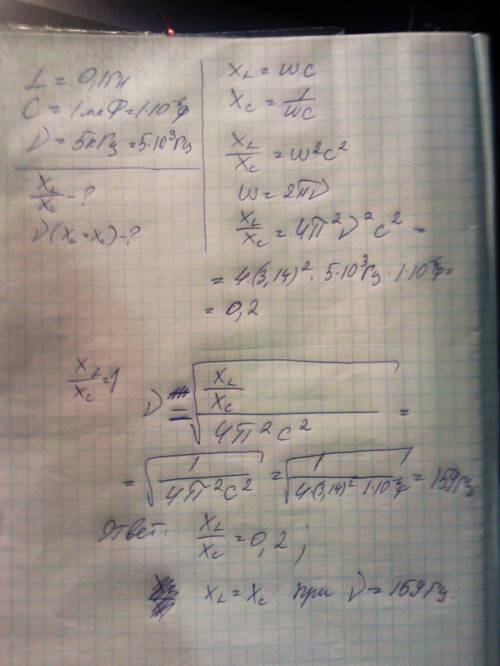 L = 0,1Гн
C = 1мкФ = 1·10⁻⁶Ф
ν = 5кГц = 5·10³Гц
X_L/X_C - ?
ν(X_L = X_C) - ?
X_L = ωC
X_C = 1/ωC
X_L/X_C = ω²C²
ω = 2πν
X_L/X_C = 4π²ν²C² =
= 4·(3,14)²·5·10³Гц·1·10⁻⁶Ф =
= 0,2
X_L/X_C = 1
ν = √((X_L/X_C)/(4π²C²)) =
= √(1/(4π²C²)) = √(1/(4·(3,14)²·1·10⁻⁶Ф)) = 159Гц
Ответ: X_L/X_C = 0,2;
X_L = X_C при ν = 159Гц